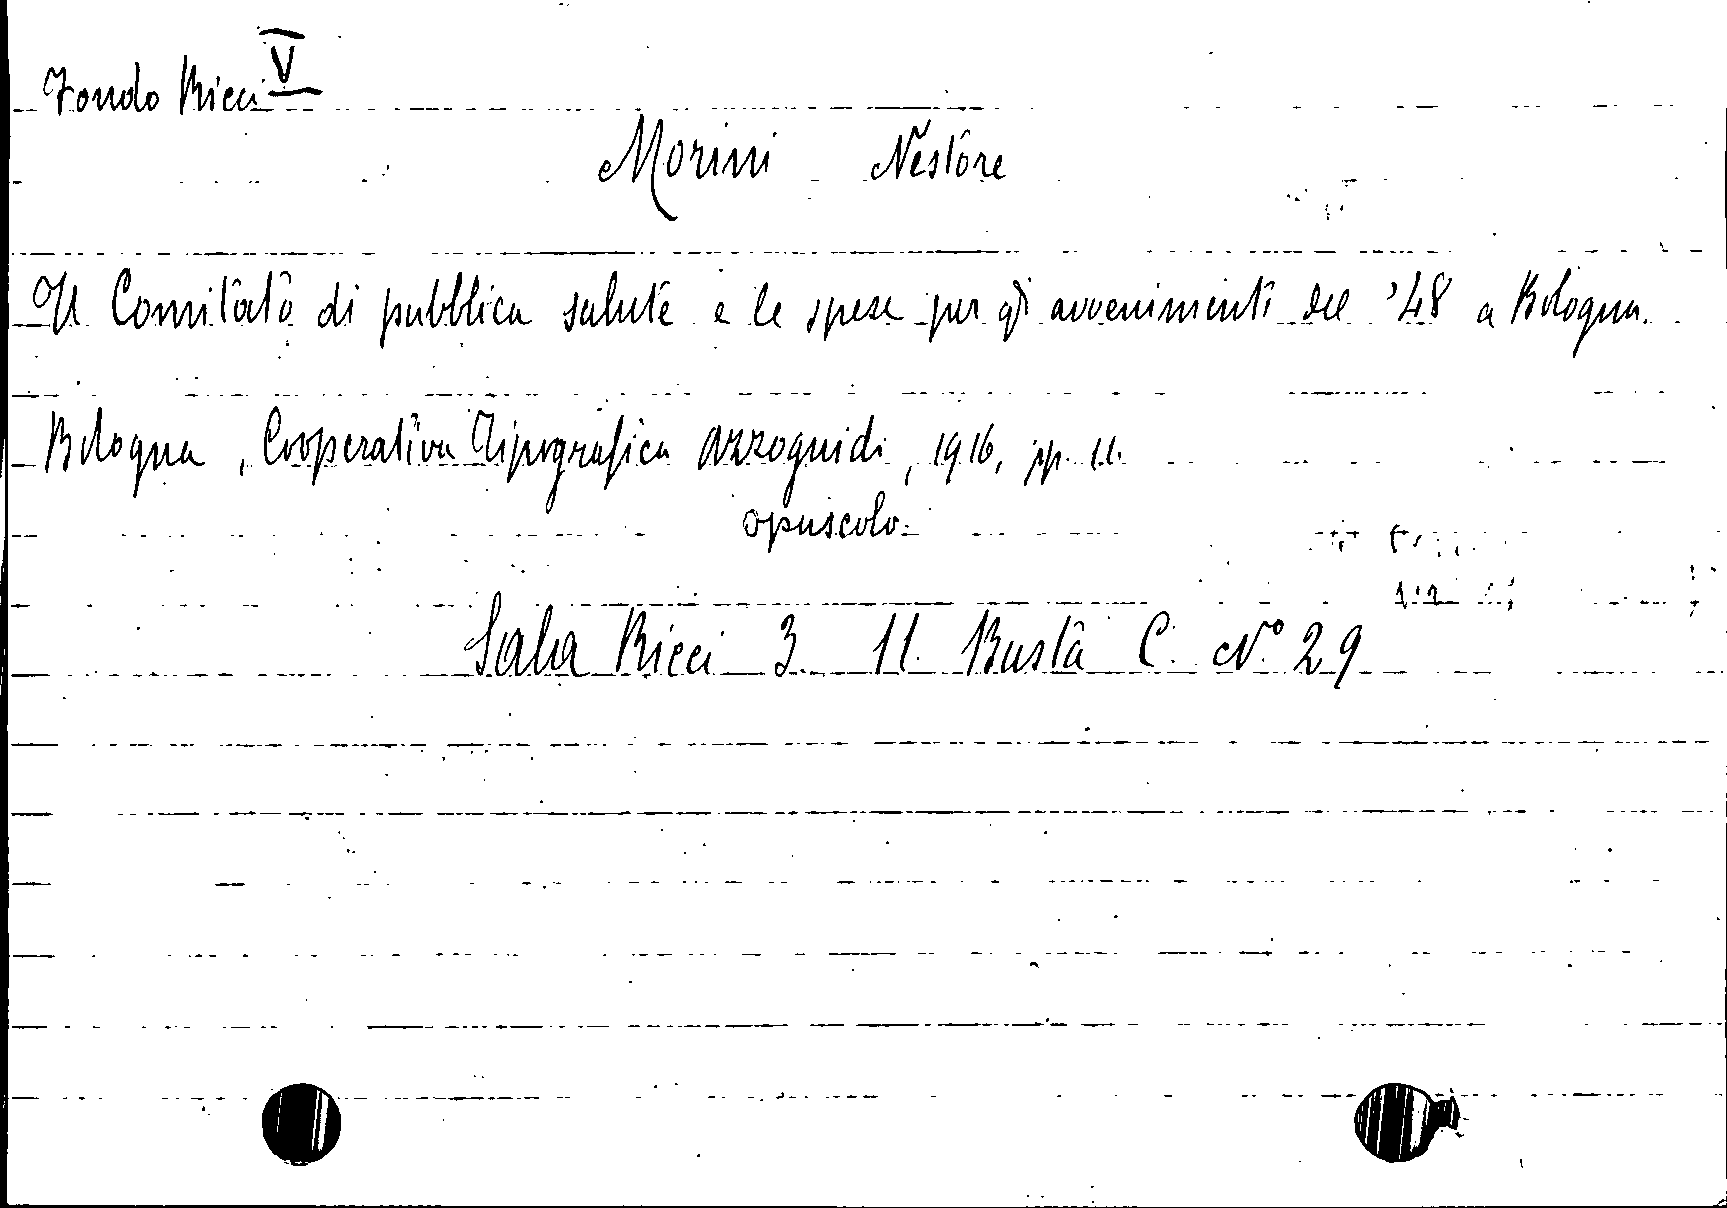 Fondo Ricci V
Morini Nestore
Il Comitato di pubblica salute e le spese per gli avvenimenti del '48 a Bologna.
Bologna, Cooperativa Tipografica Azzoguidi, 1916, pp. 11.
opuscolo.
Sala Ricci 3. 11. Busta C. N.° 29